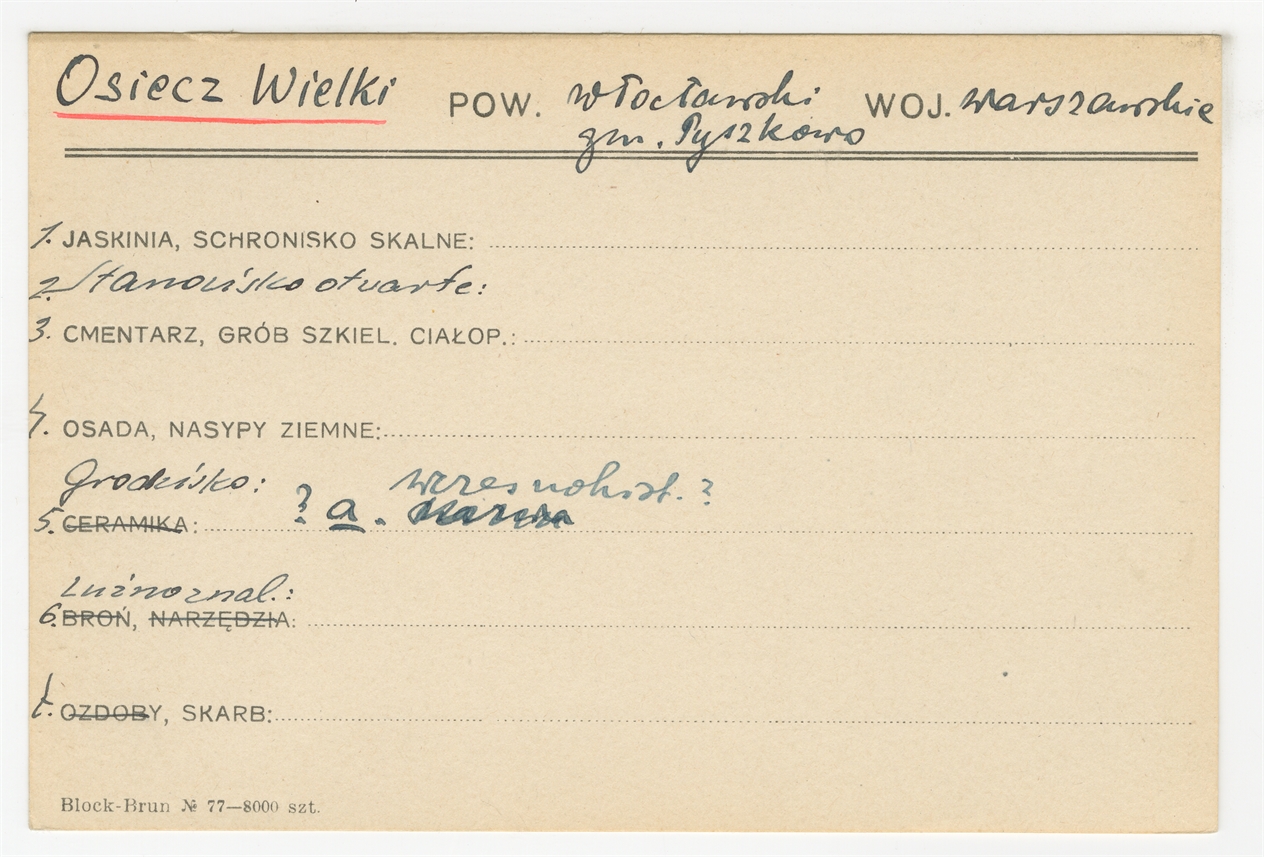 Osiecz Wielki POW. włocławski WOJ. warszawskie
gm. Pyszkowo
1. JASKINIA, SCHRONISKO SKALNE:
2. Stanowisko otwarte:
3. CMENTARZ, GRÓB SZKIEL. CIAŁOP.:
4. OSADA, NASYPY ZIEMNE:
Grodzisko: wczesnohist. ?
5. CERAMIKA: ? a.
Luźno znal.:
6. BROŃ, NARZĘDZIA:
7. OZDOBY, SKARB:
Block-Brun № 77—8000 szt.